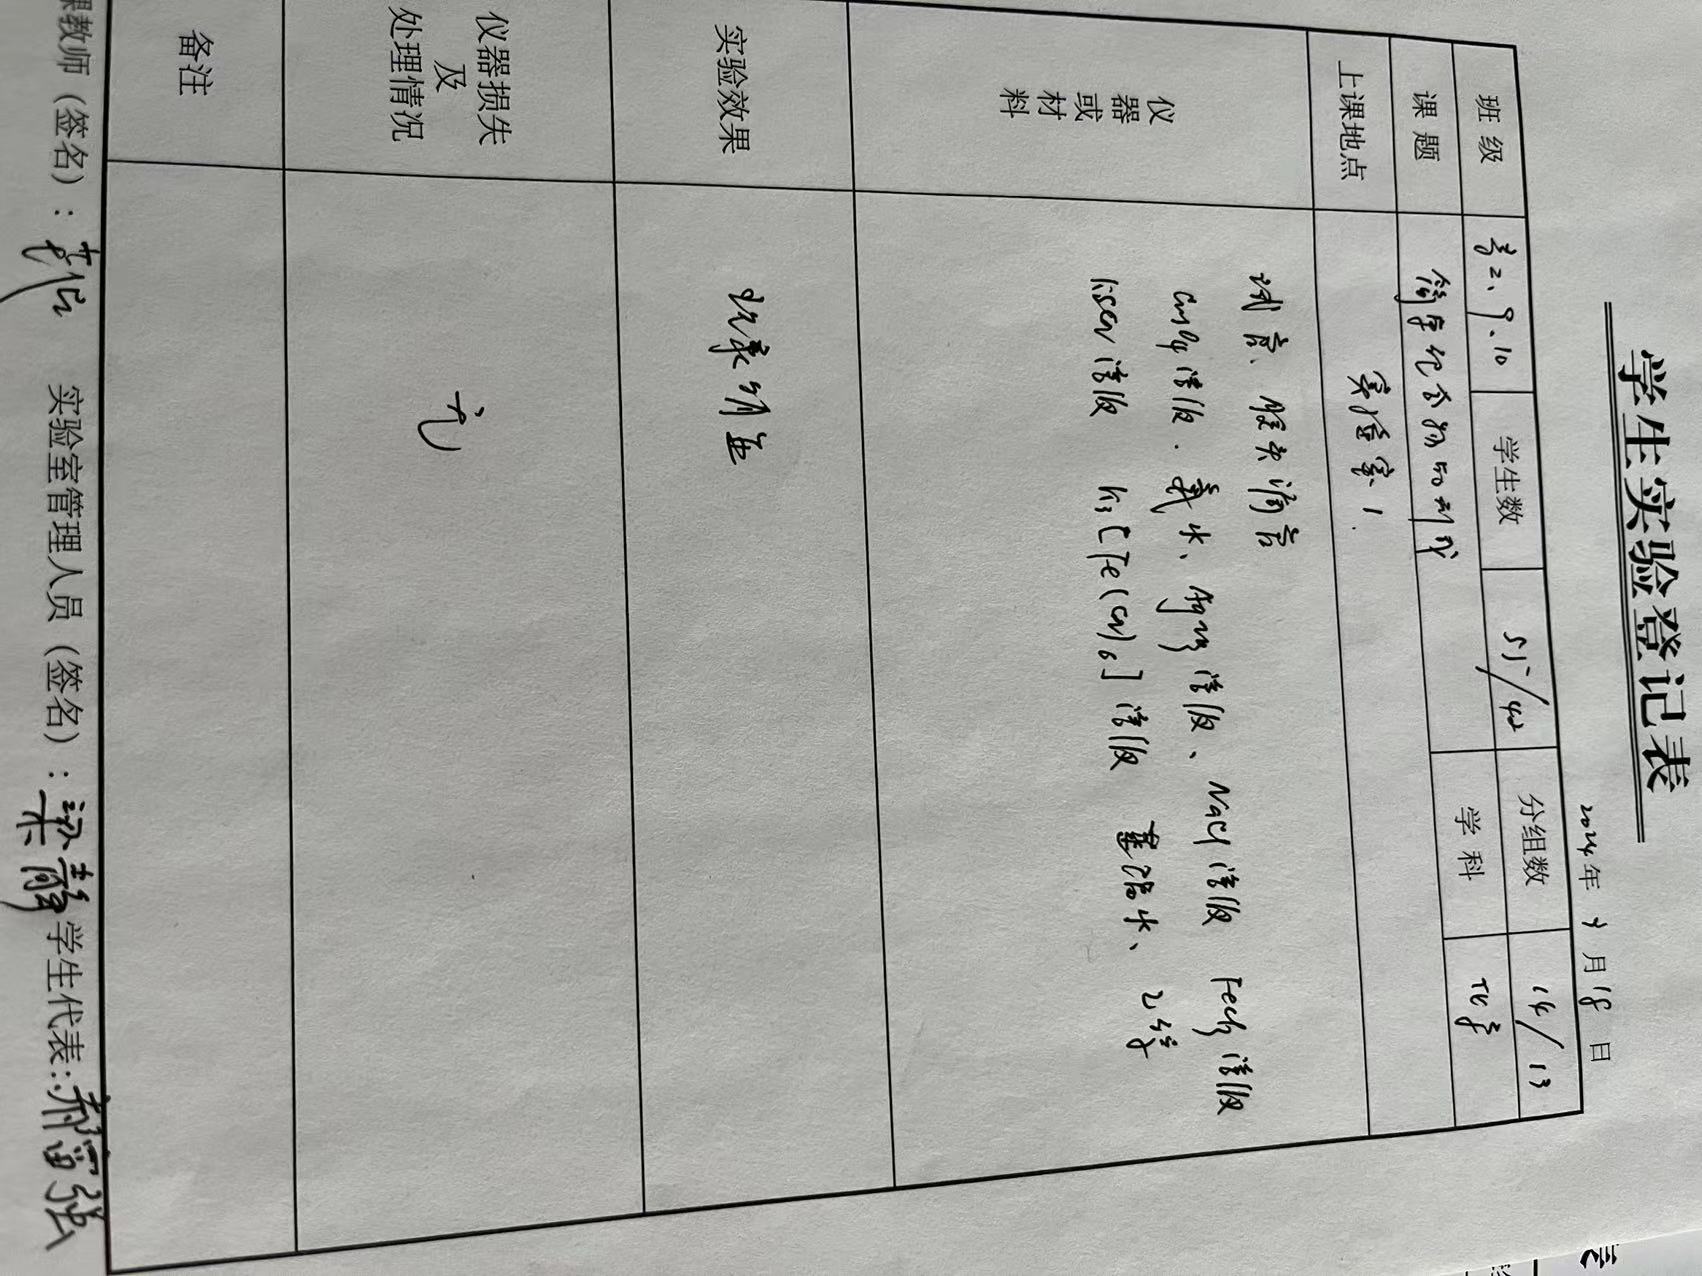 学生实验登记表
2024年 4 月 18 日
班 级 高二、9、10 学生数 55/42 分组数 14/13
课 题 简单配合物的制备 学 科 化学
上课地点 实验室1.
仪器或材料
试管、胶头滴管
CuSO4溶液、氨水、AgNO3溶液、NaCl溶液 FeCl3溶液
KSCN溶液 K3[Fe(CN)6]溶液 蒸馏水、乙醇
实验效果 现象明显
仪器损失及处理情况 无
备注
课教师(签名): 实验室管理人员(签名):梁静 学生代表: